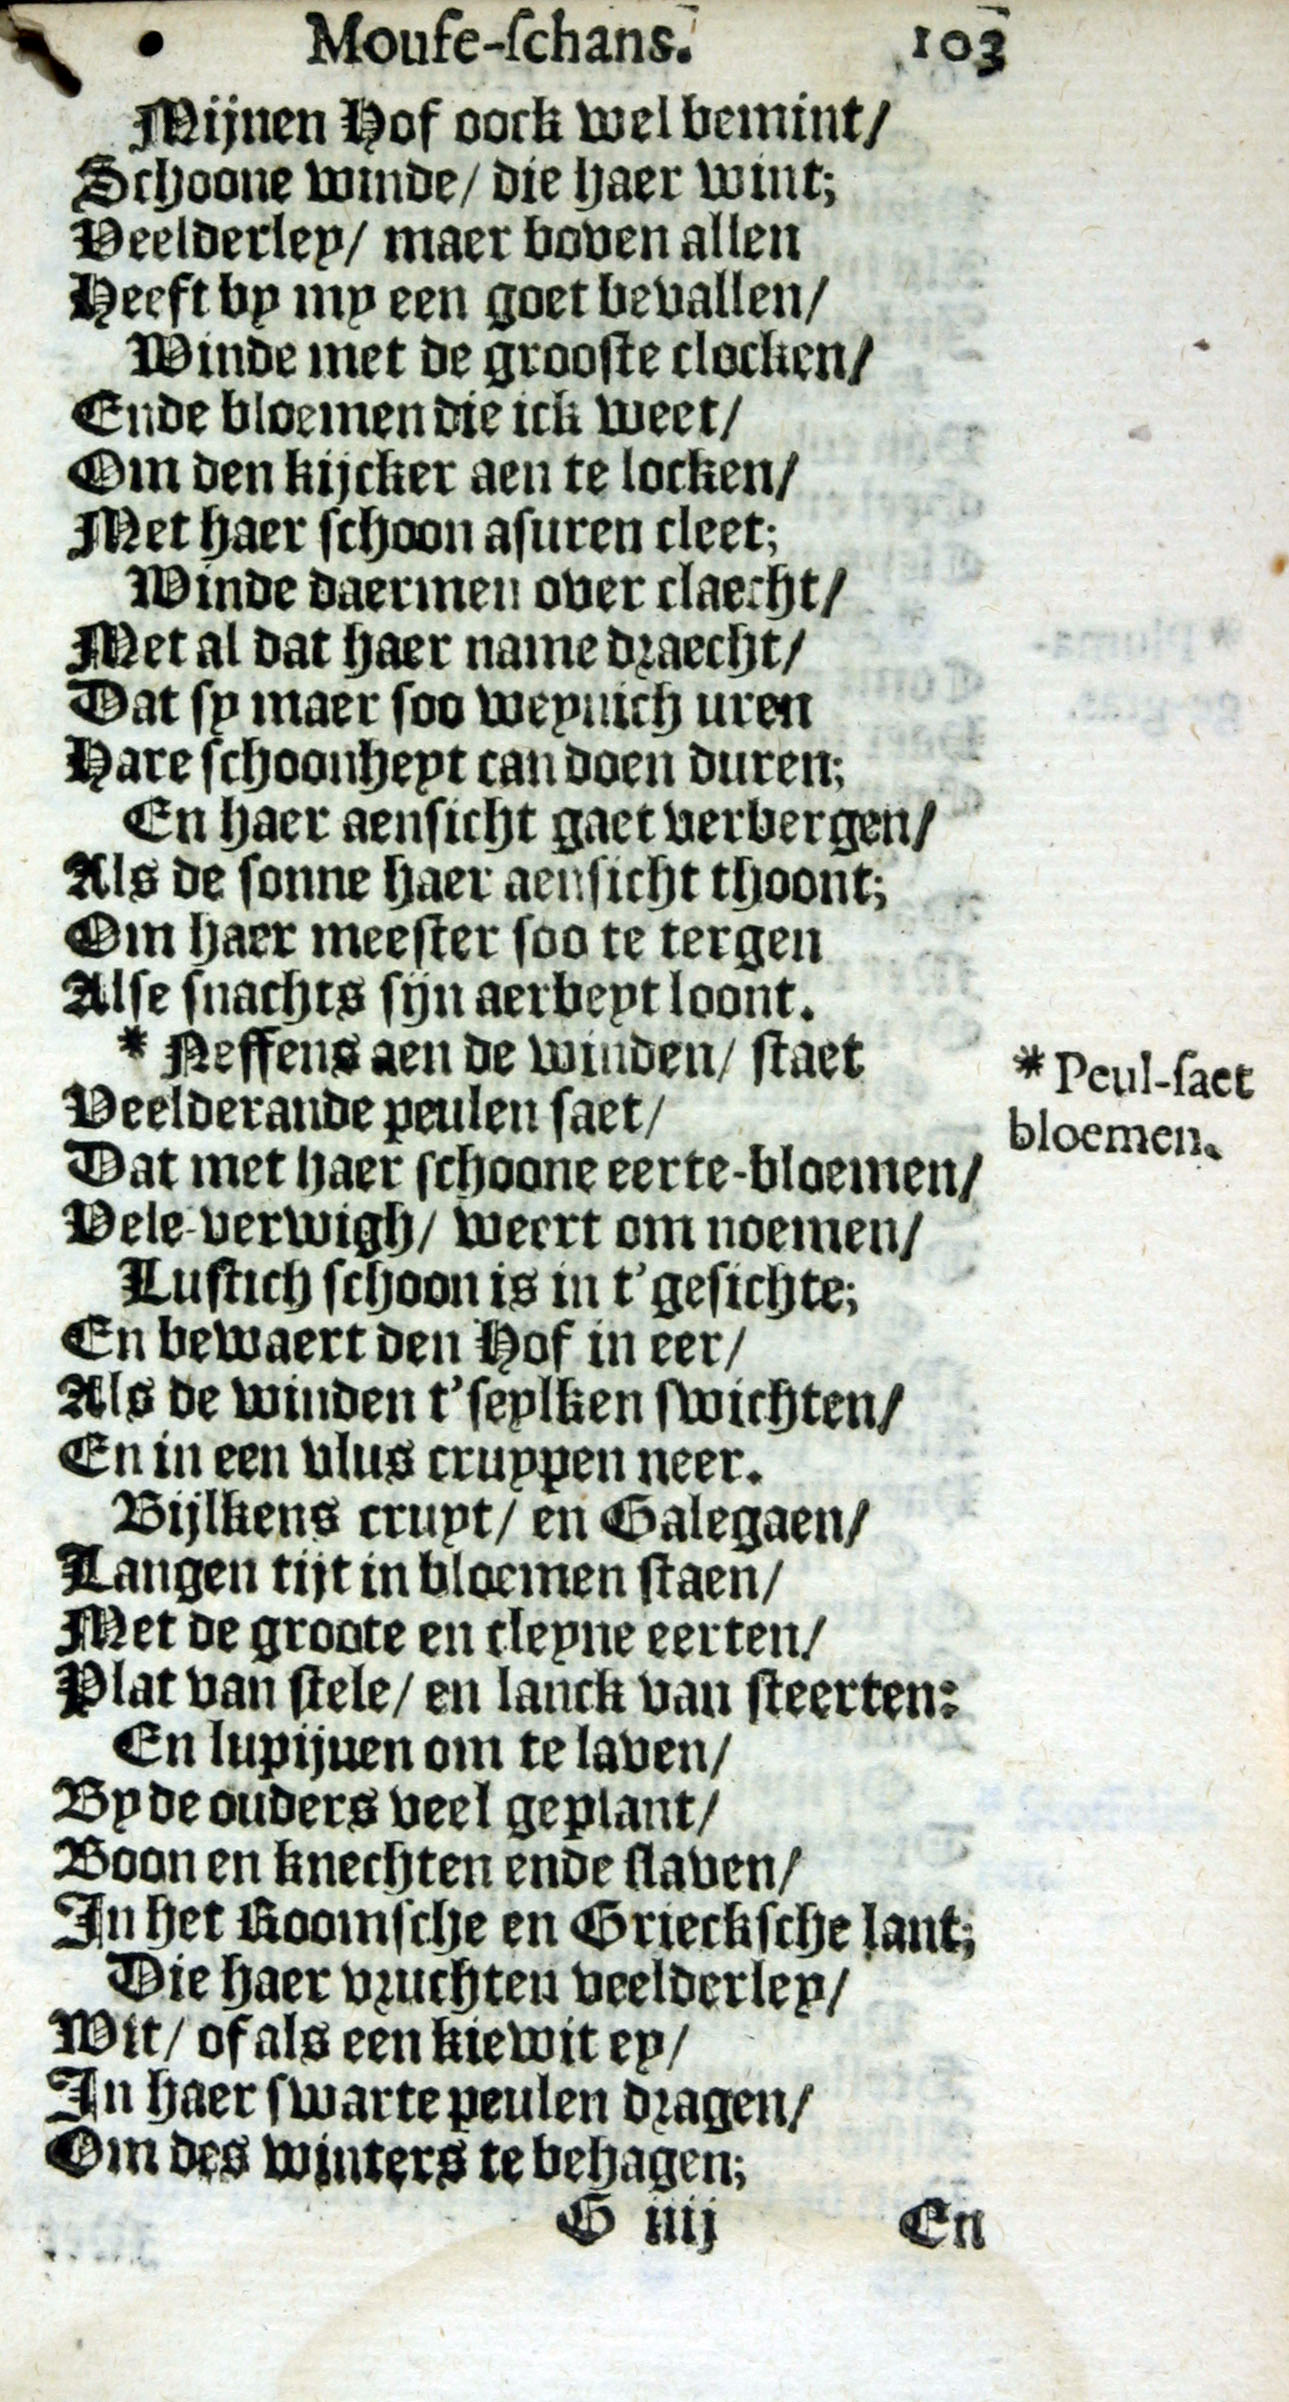 Mouse-schans. 103
Mijnen Hof oock wel bemint/
Schoone winde/ die haer wint;
Veelderley/ maer boven allen
Heeft by my een goet bevallen/
Winde met de grooste clocken/
Ende bloemen die ick weet/
Om den kijcker aen te locken/
Met haer schoon asuren cleet;
Winde daermen over claecht/
Met al dat haer name draecht/
Dat sy maer soo weynich uren
Hare schoonheyt can doen duren;
En haer aensicht gaet verbergen/
Als de sonne haer aensicht thoont;
Om haer meester soo te tergen
Alse snachts sijn aerbeyt loont.
* Neffens aen de winden/ staet
* Peul-saet
Veelderande peulen saet/
bloemen.
Dat met haer schoone eerte-bloemen/
Vele-verwigh/ weert om noemen/
Lustich schoon is in t'gesichte;
En bewaert den Hof in eer/
Als de winden t'seylken swichten/
En in een vlus cruypen neer.
Bijlkens cruyt/ en Galegaen/
Langen tijt in bloemen staen/
Met de groote en cleyne eerten/
Plat van stele/ en lanck van steerten:
En lupijnen om te laven/
By de ouders veel geplant/
Boon en knechten ende slaven/
In het Roomsche en Griecksche lant;
Die haer vruchten veelderley/
Wit/ of als een kiewit ey/
In haer swarte peulen dragen/
Om des winters te behagen;
G iiij En